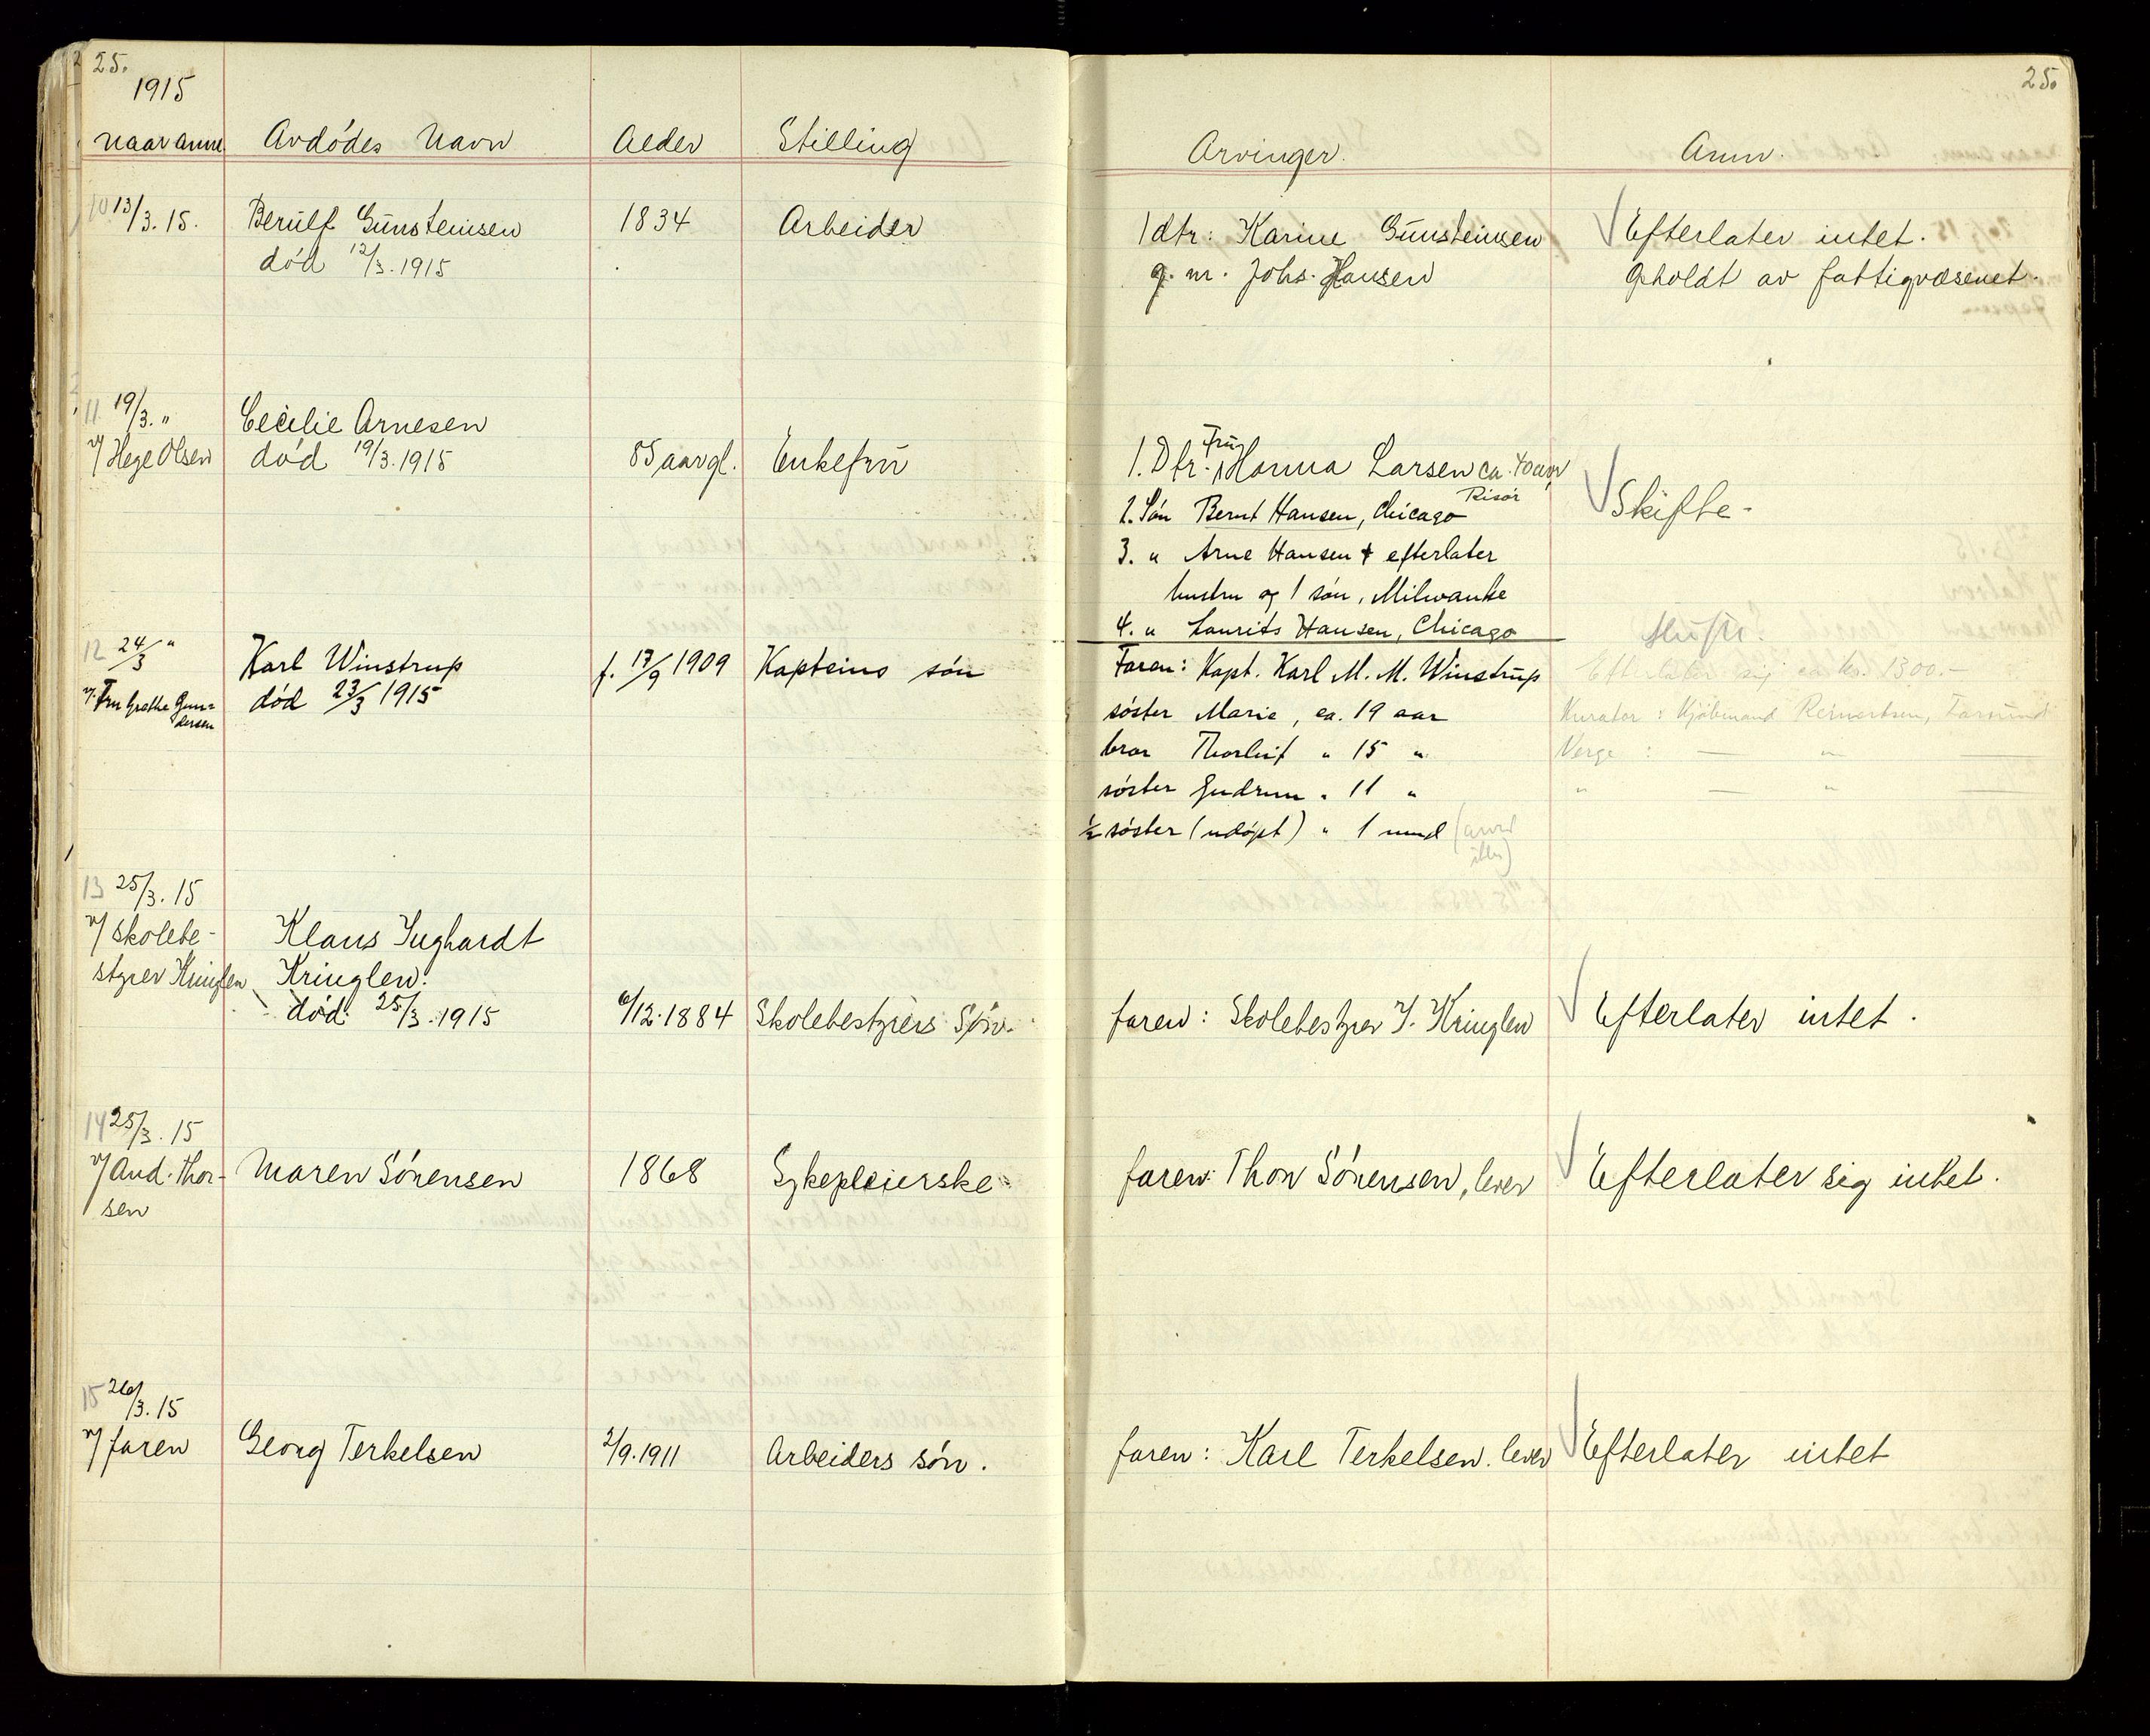 25.
25.
1915
Naar anm. Avdödes Navn Alder Stilling Arvinger. Anm.
10 13/3. 15. Berulf Gunsteinsen 1834 Arbeider 1 dtr: Karine Gunsteinsen Efterlater intet.
död 12/3. 1915 g. m. Johs. Hansen Opholdt av fattigvæsenet.
11 19/3. " Cecilie Arnesen
v/ Hege Olsen död 19/3. 1915 85 aar gl. Enkefru 1. Dtr. Fru Hanna Larsen ca. 40 aar
Risör
2. Sön Bernt Hansen, Chicago Skifte.
3. " Arne Hansen † efterlater
hustru og 1 sön, Milwauke
4. " Laurits Hansen, Chicago
12 24/3 " Karl Winstrup f. 17/9 1909 Kapteins sön Faren: Kapt. Karl M. M. Winstrup Efterlater sig ca kr. 1300.-
v. Fru Grethe Gun=
dersen
död 23/3 1915 söster Marie, ca. 19 aar Kurator: Kjöbmand Reinertsen, Farsund
bror Thorleif " 15 " Verge : — "
söster Gudrun " 11 " " — "
½ söster (udöpt) " 1 mnd
13 25/3. 15
v/ Skolebe-
styrer Kringlen
Klaus Inghardt
Kringlen.
död 25/3. 1915 6/12. 1884 Skolebestyrers Sön. faren: Skolebestyrer I. Kringlen Efterlater intet.
14 25/3. 15
v/ And. Thor-
sen
Maren Sörensen 1868 Sykepleierske faren: Thor Sörensen, lever Efterlater sig intet.
15 26/3. 15
v/ faren Georg Terkelsen 2/9. 1911 Arbeiders sön. faren: Karl Terkelsen. lever Efterlater intet